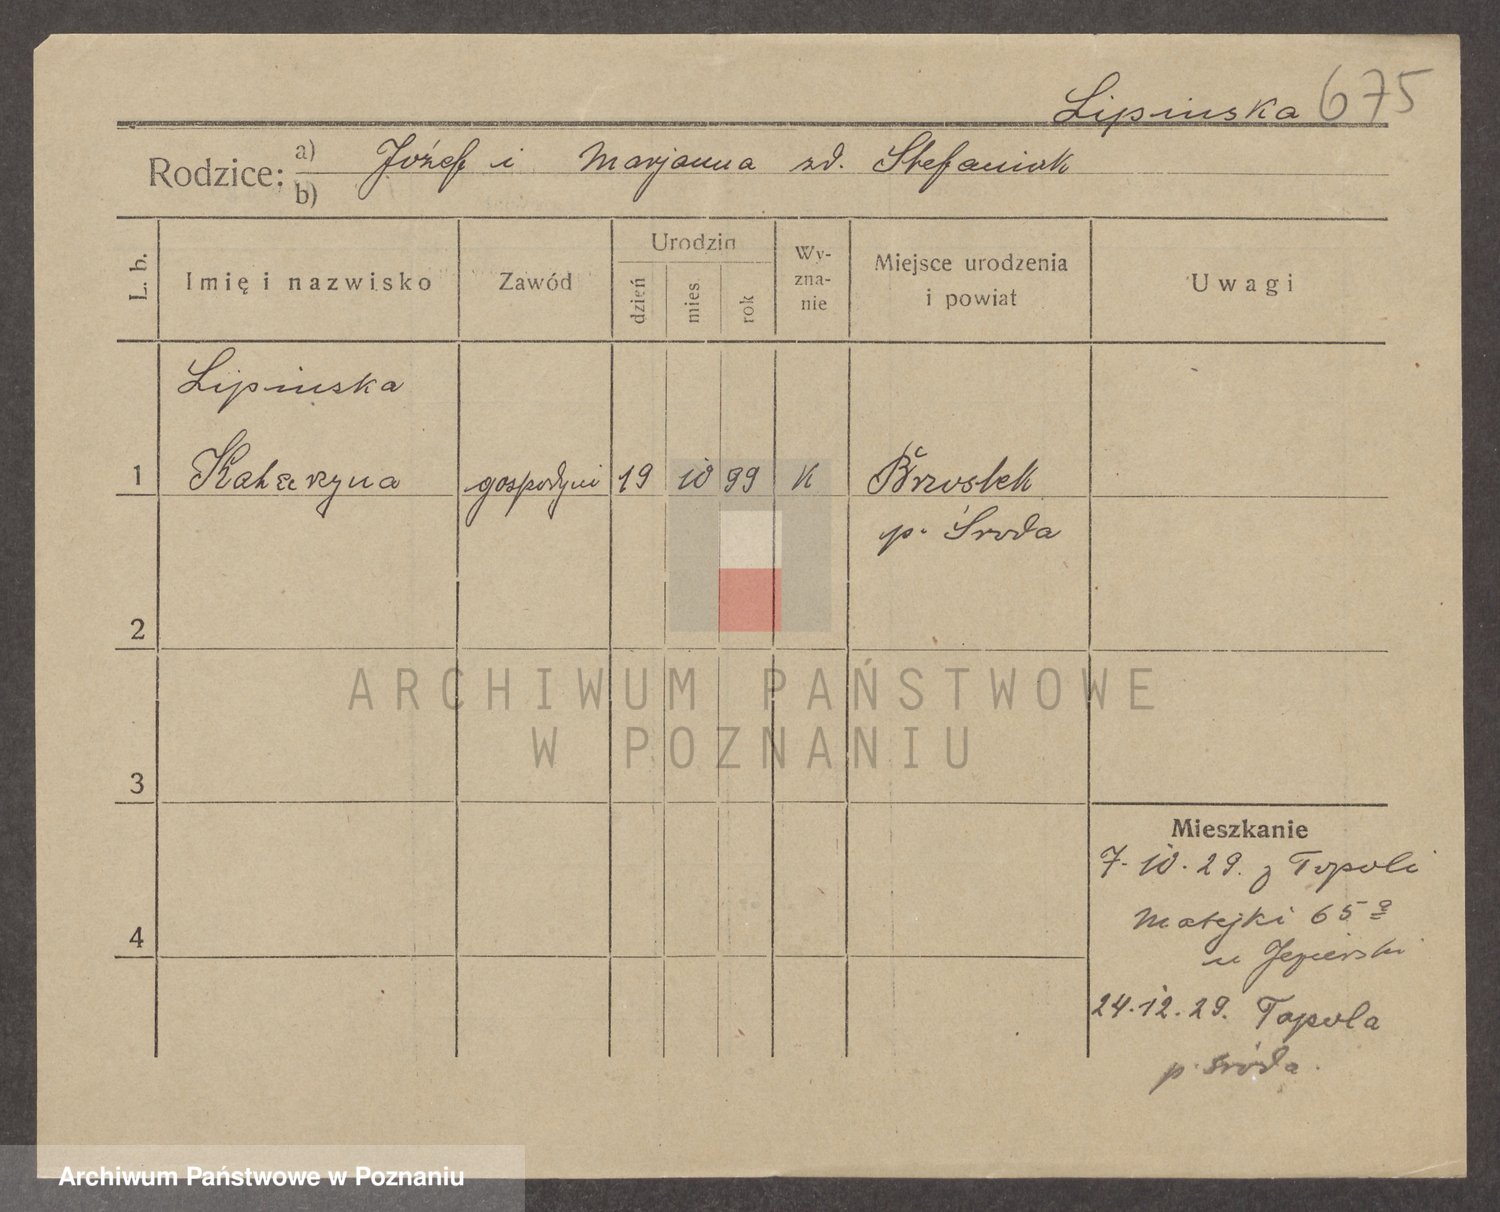 Lipinska 675
Rodzice: a) Józef i Marjanna zd. Stefaniak
b)
L. b.
Imię i nazwisko
Zawód
Urodzin
dzień
mies
rok
Wy-
zna-
nie
Miejsce urodzenia
i powiat
Uwagi
Lipinska
1 Katarzyna gospodyni 19 10 99 K Brzostek
p. Środa
2
ARCHIWUM PAŃSTWOWE
W POZNANIU
3
Mieszkanie
7. 10. 29. z Topoli
Matejki 65 a
4
u Jezierski
24. 12. 29. Topola
p. Środa.
Archiwum Państwowe w Poznaniu